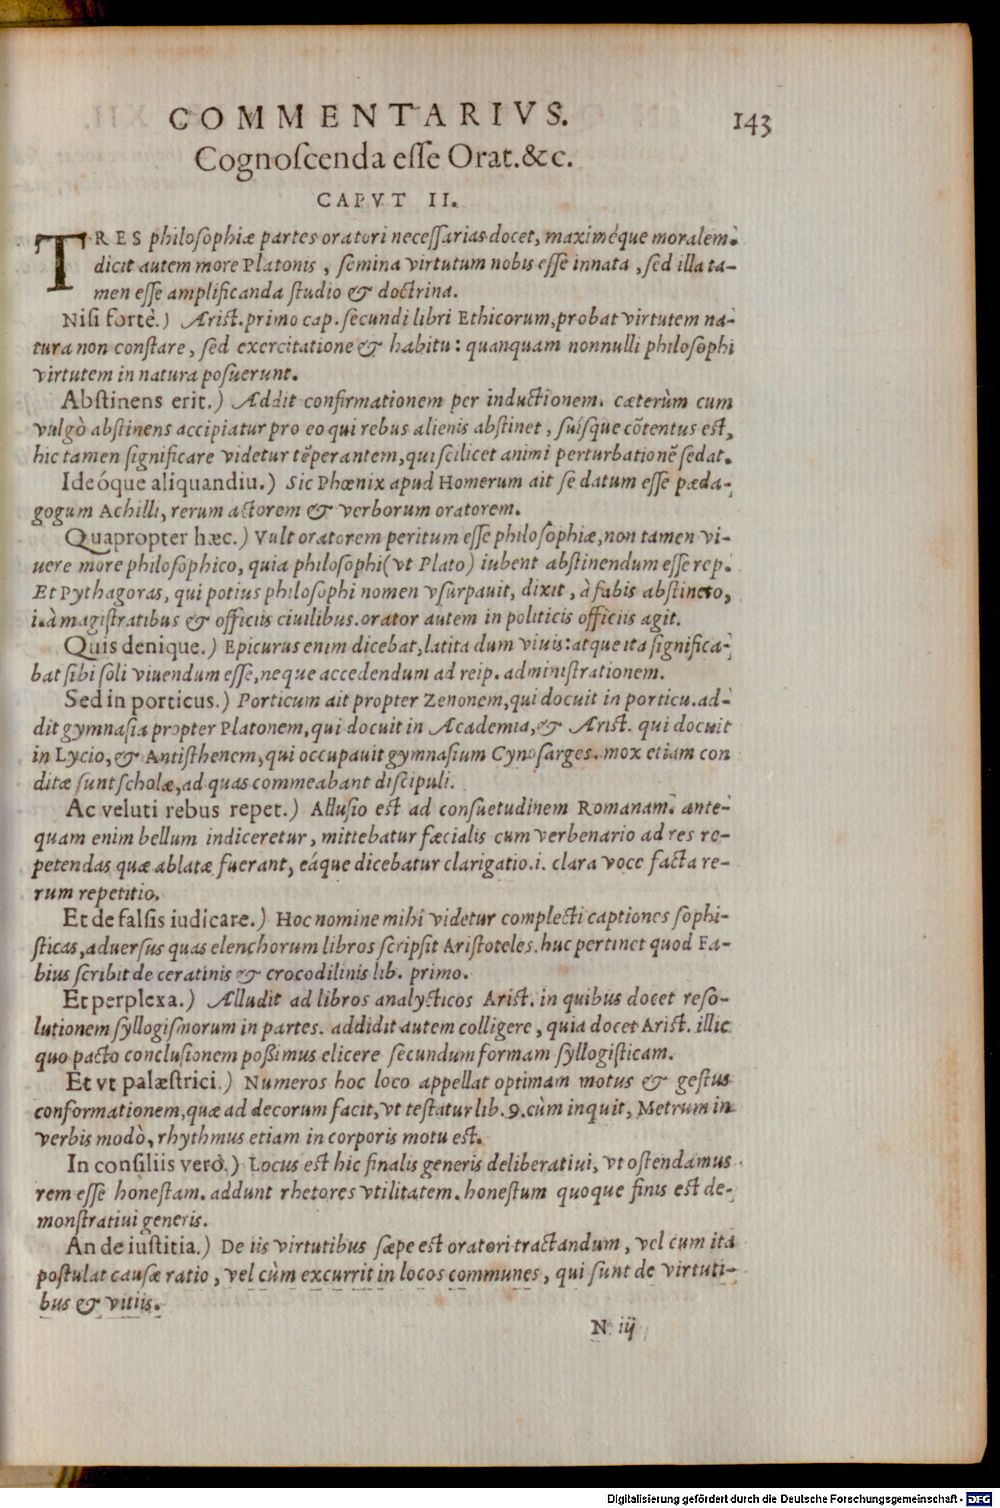 COMMENTARIVS. 143
Cognoſcenda eſſe Orat. &c.
CAPVT II.
TRES philoſophiæ partes oratori neceſſarias docet, maximéque moralem.
dicit autem more Platonis, ſemina virtutum nobis eſſe innata, ſed illa ta-
men eſſe amplificanda ſtudio & doctrina.
Niſi fortè.) Ariſt. primo cap. ſecundi libri Ethicorum, probat virtutem na-
tura non conſtare, ſed exercitatione & habitu: quanquam nonnulli philoſophi
virtutem in natura poſuerunt.
Abſtinens erit.) Addit confirmationem per inductionem. cæterùm cum
vulgò abſtinens accipiatur pro eo qui rebus alienis abſtinet, ſuíſque cõtentus eſt,
hic tamen ſignificare videtur tẽperantem, qui ſcilicet animi perturbationẽ ſedat.
Ideóque aliquandiu.) Sic Phœnix apud Homerum ait ſe datum eſſe pæda-
gogum Achilli, rerum actorem & verborum oratorem.
Quapropter hæc.) Vult oratorem peritum eſſe philoſophiæ, non tamen vi-
uere more philoſophico, quia philoſophi (vt Plato) iubent abſtinendum eſſe rep.
Et Pythagoras, qui potius philoſophi nomen vſurpauit, dixit, à fabis abſtineto,
i. à magiſtratibus & officiis ciuilibus. orator autem in politicis officiis agit.
Quis denique.) Epicurus enim dicebat, latita dum viuis: atque ita ſignifica-
bat ſibi ſoli viuendum eſſe, neque accedendum ad reip. adminiſtrationem.
Sed in porticus.) Porticum ait propter Zenonem, qui docuit in porticu. ad-
dit gymnaſia propter Platonem, qui docuit in Academia, & Ariſt. qui docuit
in Lycio, & Antiſthenem, qui occupauit gymnaſium Cynoſarges. mox etiam con
ditæ ſunt ſcholæ, ad quas commeabant diſcipuli.
Ac veluti rebus repet.) Alluſio eſt ad conſuetudinem Romanam. ante-
quam enim bellum indiceretur, mittebatur fæcialis cum verbenario ad res re-
petendas quæ ablatæ fuerant, eáque dicebatur clarigatio. i. clara voce facta re-
rum repetitio.
Et de falſis iudicare.) Hoc nomine mihi videtur complecti captiones ſophi-
ſticas, aduerſus quas elenchorum libros ſcripſit Ariſtoteles. huc pertinet quod Fa-
bius ſcribit de ceratinis & crocodilinis lib. primo.
Et perplexa.) Alludit ad libros analycticos Ariſt. in quibus docet reſo-
lutionem ſyllogiſmorum in partes. addidit autem colligere, quia docet Ariſt. illic
quo pacto concluſionem poßimus elicere ſecundum formam ſyllogiſticam.
Et vt palæſtrici.) Numeros hoc loco appellat optimam motus & geſtus
conformationem, quæ ad decorum facit, vt teſtatur lib. 9. cùm inquit, Metrum in
verbis modò, rhythmus etiam in corporis motu eſt.
In conſiliis verò.) Locus eſt hic finalis generis deliberatiui, vt oſtendamus
rem eſſe honeſtam. addunt rhetores vtilitatem. honeſtum quoque finis eſt de-
monſtratiui generis.
An de iuſtitia.) De iis virtutibus ſæpe eſt oratori tractandum, vel cum ita
poſtulat cauſæ ratio, vel cùm excurrit in locos communes, qui ſunt de virtuti-
bus & vitiis.
N iij
Digitalisierung gefördert durch die Deutsche Forschungsgemeinschaft - DFG